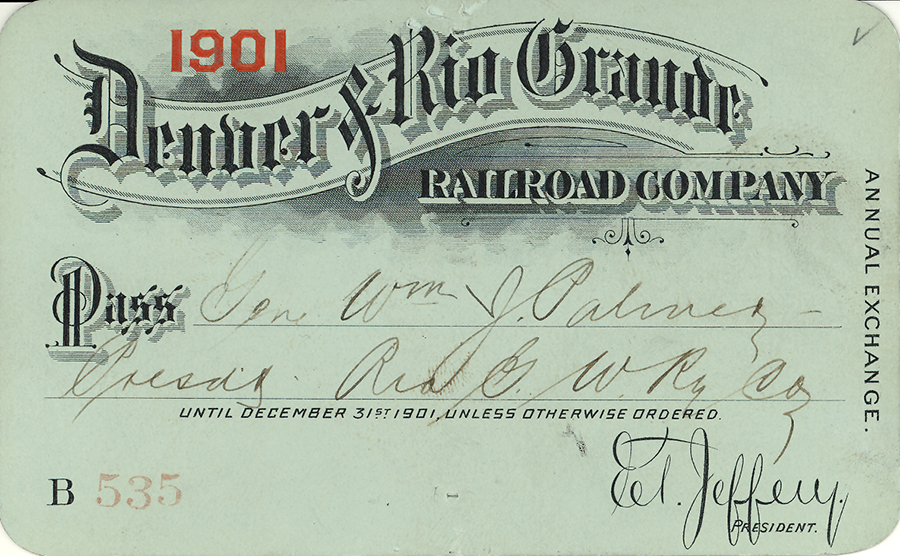 1901
Denver & Rio Grande
RAILROAD COMPANY
ANNUAL EXCHANGE.
Pass Gen Wm J. Palmer
Presdt. Rio G. W. Ry Co
UNTIL DECEMBER 31ST 1901, UNLESS OTHERWISE ORDERED.
B 535
E.T. Jeffery.
PRESIDENT.